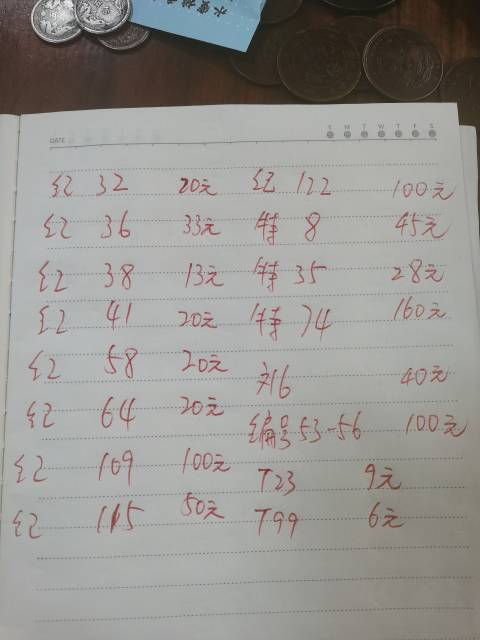 DATE
S M T W T F S
纪 32 20元 纪 122 100元
纪 36 33元 特 8 45元
纪 38 13元 特 35 28元
纪 41 20元 特 74 160元
纪 58 20元 刘6 40元
纪 64 20元 编号53-56 100元
纪 109 100元 T23 9元
纪 115 50元 T99 6元